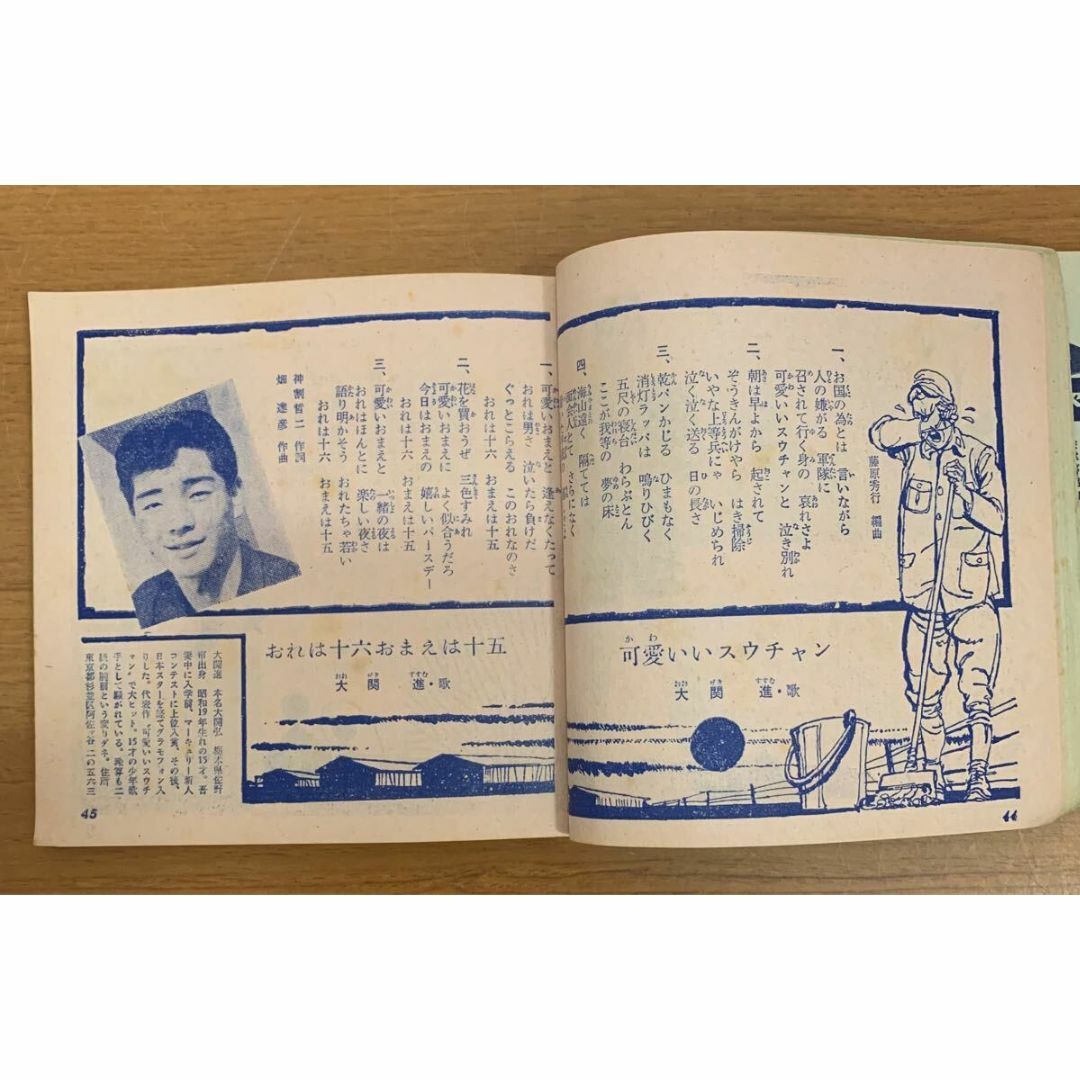 可愛いいスウチャン
大関進・歌
藤原秀行 編曲
一、お国の為とは 言いながら
人の嫌がる 軍隊に
召されて行く身の 哀れさよ
可愛いいスウチャンと 泣き別れ
二、朝は早よから 起されて
ぞうきんがけやら はき掃除
いやな上等兵にゃ いじめられ
泣く泣く送る 日の長さ
三、乾パンかじる ひまもなく
消灯ラッパは 鳴りひびく
五尺の寝台 わらぶとん
ここが我等の 夢の床
四、海山遠く 隔てては
面会人とて さらになく
44
おれは十六おまえは十五
大関進・歌
一、可愛いおまえと 逢えなくたって
おれは男さ 泣いたら負けだ
ぐっとこらえる このおれなのさ
おれは十六 おまえは十五
二、花を買おうぜ 三色すみれ
可愛いおまえに よく似合うだろ
今日はおまえの 嬉しいバースデー
おれは十六 おまえは十五
三、可愛いおまえと 一緒の夜は
おれはほんとに 楽しい夜さ
語り明かそう おれたちゃ若い
おれは十六 おまえは十五
神割哲二 作詞
畑 達彦 作曲
大関進 本名大関弘 栃木県佐野
市出身 昭和19年生れの15才。吾
妻中に入学前、マーキュリー新人
コンテストに上位入賞、その後、
日本スターを経てグラモフォン入
りした。代表作「可愛いいスウチ
ャン」で大ヒット。15才の少年歌
手として騒がれている。
という変りダネ。住所
東京都杉並区阿佐ヶ谷二の五六三
45